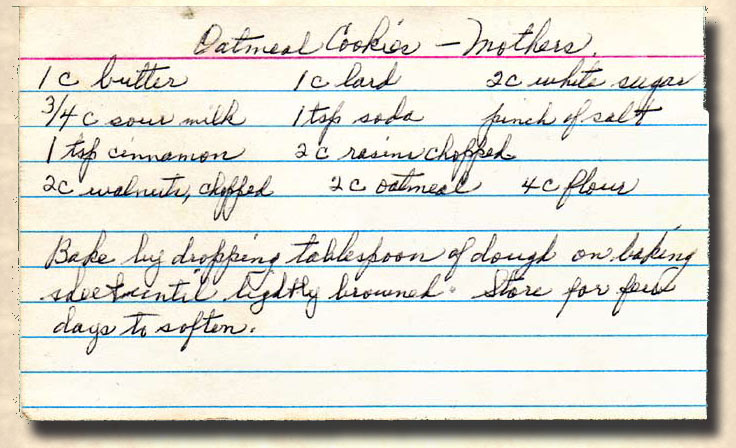 Oatmeal Cookies - Mothers.
1 c butter 1 c lard 2 c white sugar
3/4 c sour milk 1 tsp soda pinch of salt
1 tsp cinnamon 2 c rasins chopped
2 c walnuts, chopped 2 c oatmeal 4 c flour
Bake by dropping tablespoon of dough on baking
sheet until lightly browned. Store for few
days to soften.